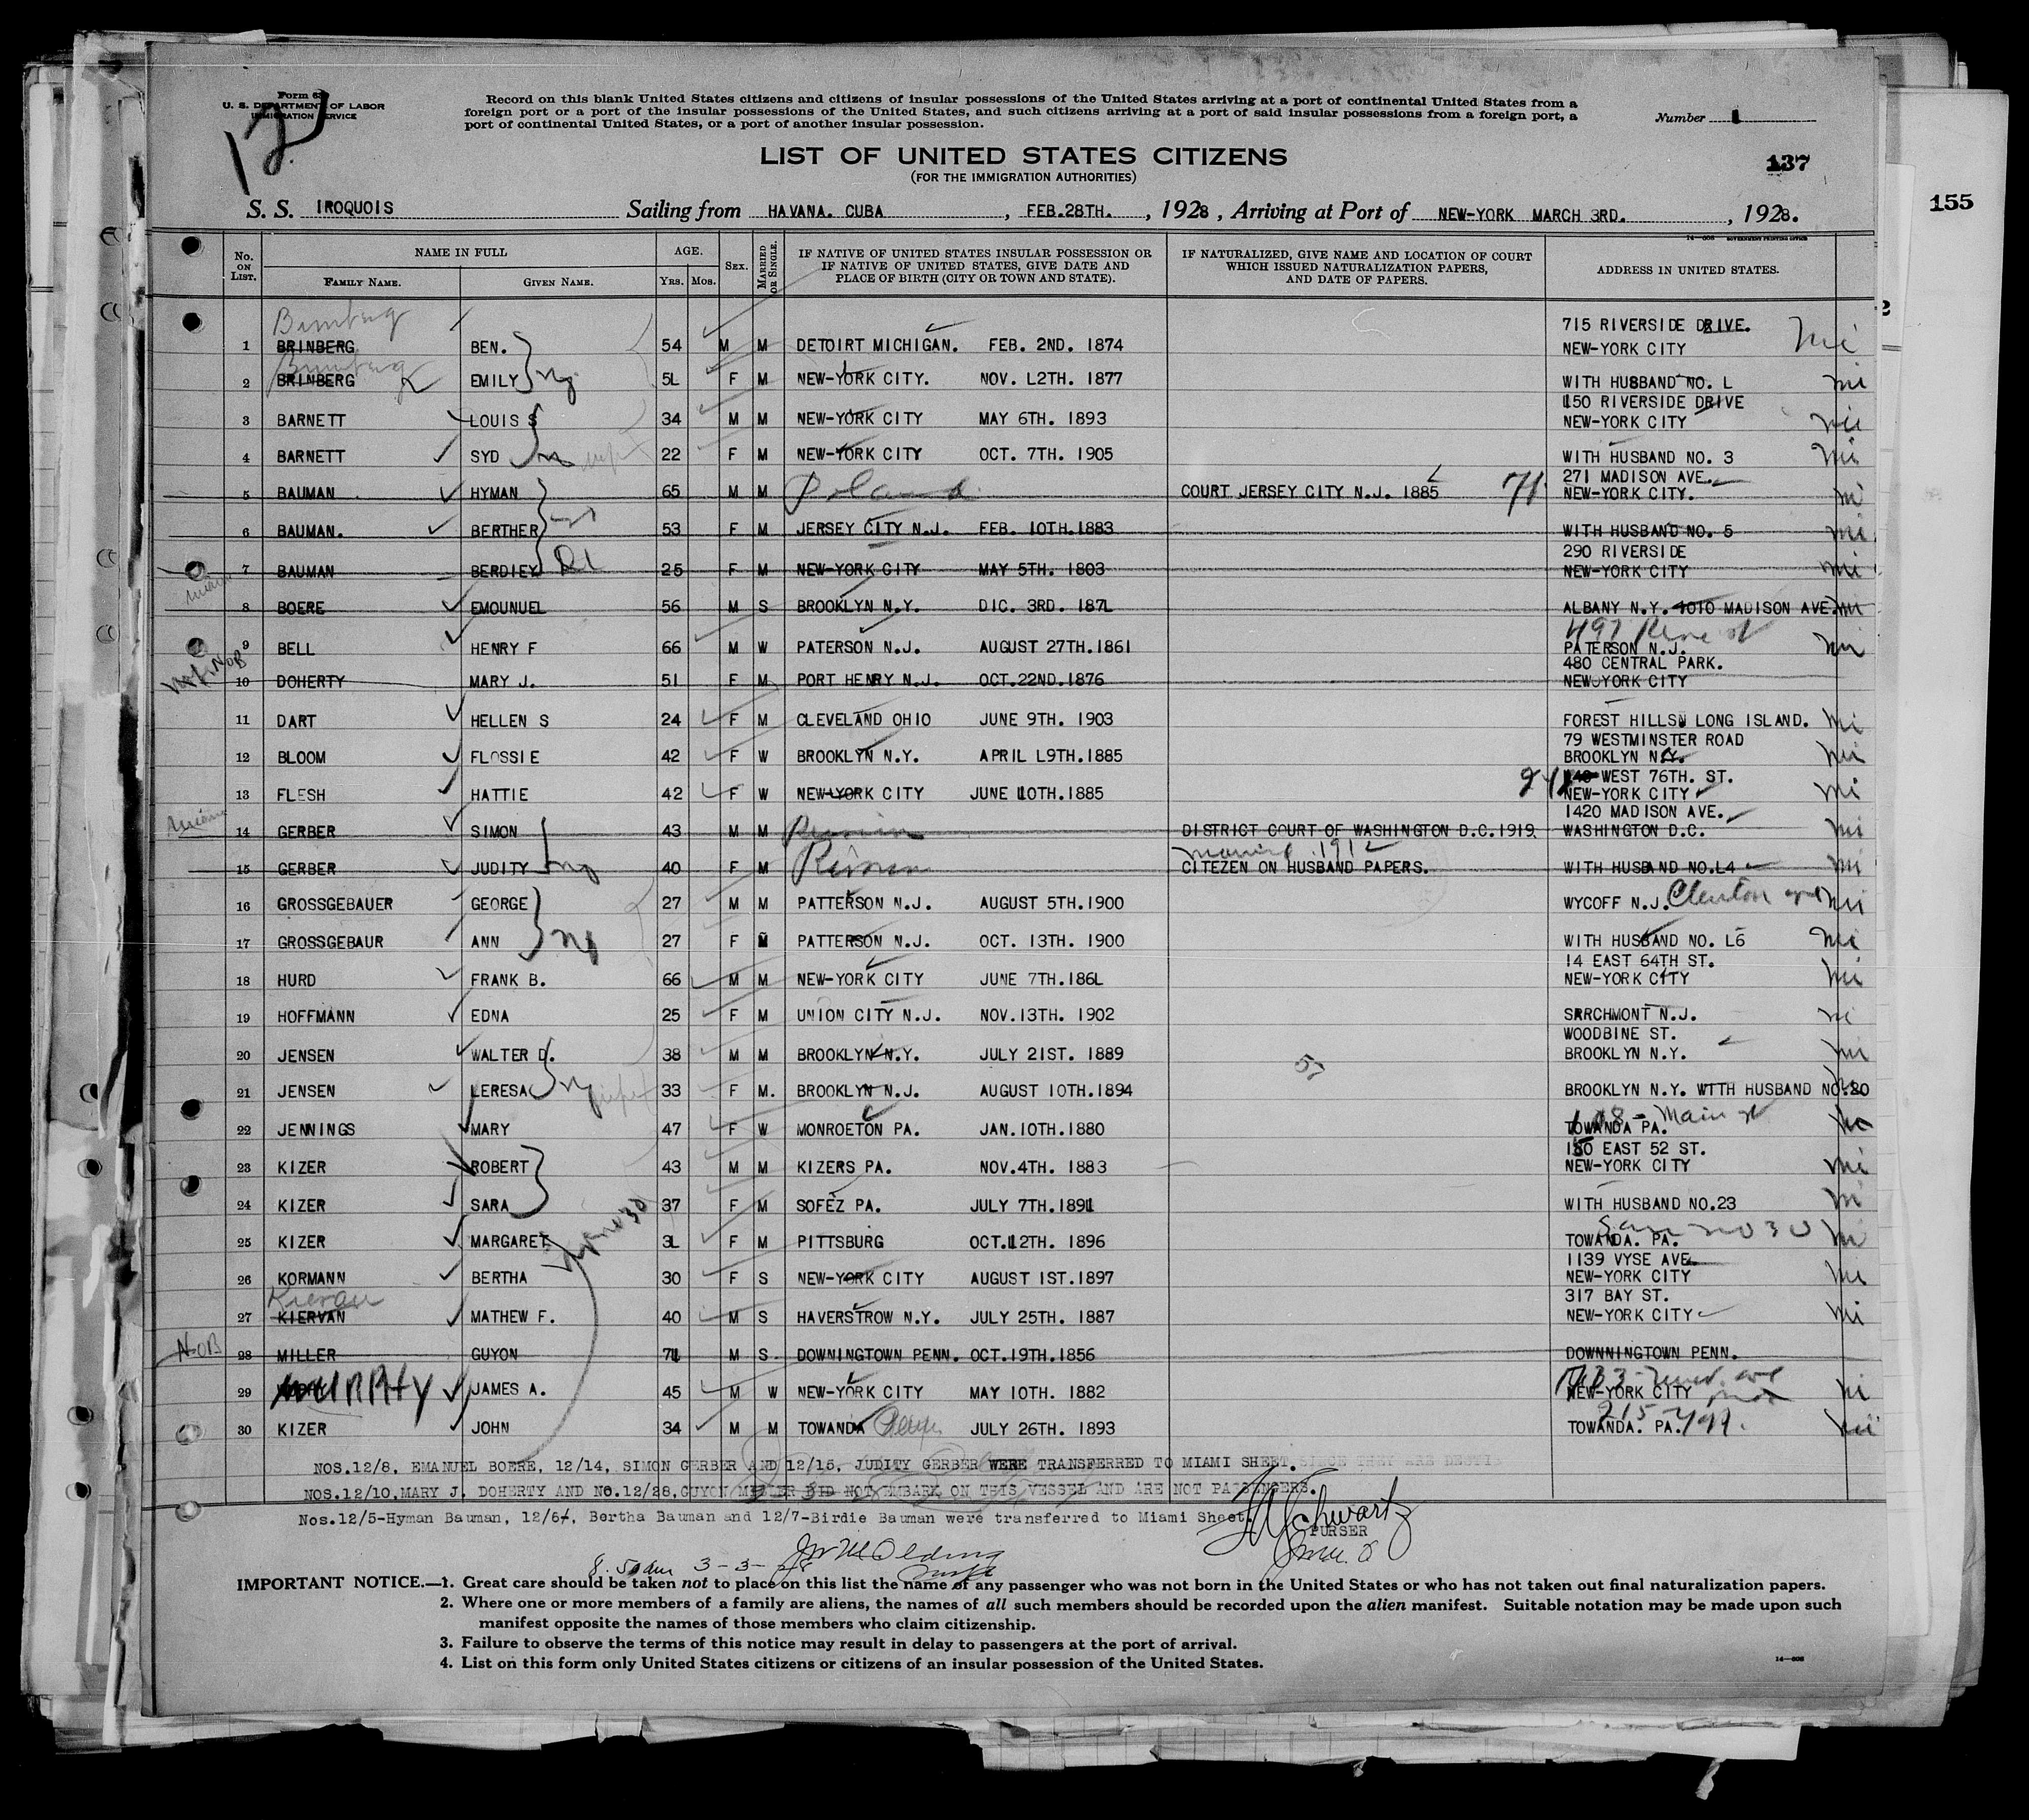 Form 63
U. S. DEPARTMENT OF LABOR
IMMIGRATION SERVICE
12
Record on this blank United States citizens and citizens of insular possessions of the United States arriving at a port of continental United States from a
foreign port or a port of the insular possessions of the United States, and such citizens arriving at a port of said insular possessions from a foreign port, a
port of continental United States, or a port of another insular possession.
Number 1
LIST OF UNITED STATES CITIZENS
(FOR THE IMMIGRATION AUTHORITIES)
137
155
S. S. IROQUOIS Sailing from HAVANA. CUBA , FEB.28TH. , 1928 , Arriving at Port of NEW-YORK MARCH 3RD. , 1928.
14-608 GOVERNMENT PRINTING OFFICE
No. ON LIST. NAME IN FULL FAMILY NAME. GIVEN NAME. AGE. YRS. MOS. SEX. MARRIED OR SINGLE. IF NATIVE OF UNITED STATES INSULAR POSSESSION OR IF NATIVE OF UNITED STATES, GIVE DATE AND PLACE OF BIRTH (CITY OR TOWN AND STATE). IF NATURALIZED, GIVE NAME AND LOCATION OF COURT WHICH ISSUED NATURALIZATION PAPERS, AND DATE OF PAPERS. ADDRESS IN UNITED STATES.
Bimberg
715 RIVERSIDE DRIVE.
1 BRINBERG BEN. 54 M M DETOIRT MICHIGAN. FEB. 2ND. 1874 NEW-YORK CITY
Bimberg
2 BRINBERG EMILY 5L F M NEW-YORK CITY. NOV. L2TH. 1877 WITH HUSBAND NO. L
150 RIVERSIDE DRIVE
3 BARNETT LOUIS S 34 M M NEW-YORK CITY MAY 6TH. 1893 NEW-YORK CITY
4 BARNETT SYD 22 F M NEW-YORK CITY OCT. 7TH. 1905 WITH HUSBAND NO. 3
271 MADISON AVE.
5 BAUMAN HYMAN 65 M M Poland COURT JERSEY CITY N.J. 1885 71 NEW-YORK CITY.
6 BAUMAN. BERTHER 53 F M JERSEY CITY N.J. FEB. 10TH.1883 WITH HUSBAND NO. 5
290 RIVERSIDE
7 BAUMAN BERDIEY 25 F M NEW-YORK CITY MAY 5TH. 1803 NEW-YORK CITY
8 BOERE EMOUNUEL 56 M S BROOKLYN N.Y. DIC. 3RD. 187L ALBANY N.Y. 1010 MADISON AVE.
9 BELL HENRY F 66 M W PATERSON N.J. AUGUST 27TH.1861 PATERSON N.J.
NOB
480 CENTRAL PARK.
10 DOHERTY MARY J. 51 F M PORT HENRY N.J. OCT.22ND.1876 NEW YORK CITY
11 DART HELLEN S 24 F M CLEVELAND OHIO JUNE 9TH. 1903 FOREST HILLS LONG ISLAND.
79 WESTMINSTER ROAD
12 BLOOM FLOSSIE 42 F W BROOKLYN N.Y. APRIL L9TH.1885 BROOKLYN N.Y.
WEST 76TH. ST.
13 FLESH HATTIE 42 F W NEW-YORK CITY JUNE 10TH.1885 NEW-YORK CITY
1420 MADISON AVE.
14 GERBER SIMON 43 M M Russia DISTRICT COURT OF WASHINGTON D.C.1919. WASHINGTON D.C.
1912
15 GERBER JUDITY 40 F M Russia CITEZEN ON HUSBAND PAPERS. WITH HUSBAND NO.L4
16 GROSSGEBAUER GEORGE 27 M M PATTERSON N.J. AUGUST 5TH.1900 WYCOFF N.J. Clinton
17 GROSSGEBAUR ANN 27 F M PATTERSON N.J. OCT. 13TH. 1900 WITH HUSBAND NO. L6
14 EAST 64TH ST.
18 HURD FRANK B. 66 M M NEW-YORK CITY JUNE 7TH.186L NEW-YORK CITY
19 HOFFMANN EDNA 25 F M UNION CITY N.J. NOV.13TH. 1902 SRRCHMONT N.J.
WOODBINE ST.
20 JENSEN WALTER D. 38 M M BROOKLYN N.Y. JULY 21ST. 1889 BROOKLYN N.Y.
21 JENSEN LERESA 33 F M. BROOKLYN N.J. AUGUST 10TH.1894 BROOKLYN N.Y. WTTH HUSBAND NO.20
108 - Main st
22 JENNINGS MARY 47 F W MONROETON PA. JAN.10TH.1880 TOWANDA PA.
150 EAST 52 ST.
23 KIZER ROBERT 43 M M KIZERS PA. NOV.4TH. 1883 NEW-YORK CITY
24 KIZER SARA 37 F M SOFEZ PA. JULY 7TH.1891 WITH HUSBAND NO.23
Same no 30
25 KIZER MARGARET 3L F M PITTSBURG OCT.12TH. 1896 TOWANDA. PA.
1139 VYSE AVE.
26 KORMANN BERTHA 30 F S NEW-YORK CITY AUGUST 1ST.1897 NEW-YORK CITY
Kieran
317 BAY ST.
27 KIERVAN MATHEW F. 40 M S HAVERSTROW N.Y. JULY 25TH. 1887 NEW-YORK CITY
NOB
28 MILLER GUYON 71 M S DOWNINGTOWN PENN. OCT.19TH.1856 DOWNNINGTOWN PENN.
29 JAMES A. 45 M W NEW-YORK CITY MAY 10TH. 1882 NEW-YORK CITY
30 KIZER JOHN 34 M M TOWANDA JULY 26TH. 1893 TOWANDA. PA.
NOS.12/8, EMANUEL BOERE, 12/14, SIMON GERBER AND 12/15, JUDITY GERBER WERE TRANSFERRED TO MIAMI SHEET SINCE THEY ARE
NOS.12/10,MARY J. DOHERTY AND NO.12/28,GUYON MILLER DID NOT EMBARK ON THIS VESSEL AND ARE NOT PASSENGERS.
Nos.12/5-Hyman Bauman, 12/6, Bertha Bauman and 12/7-Birdie Bauman were transferred to Miami Sheet.
Schwartz
PURSER
8.50 am 3-3-28
IMPORTANT NOTICE.—1. Great care should be taken not to place on this list the name of any passenger who was not born in the United States or who has not taken out final naturalization papers.
2. Where one or more members of a family are aliens, the names of all such members should be recorded upon the alien manifest. Suitable notation may be made upon such
manifest opposite the names of those members who claim citizenship.
3. Failure to observe the terms of this notice may result in delay to passengers at the port of arrival.
4. List on this form only United States citizens or citizens of an insular possession of the United States.
14-608